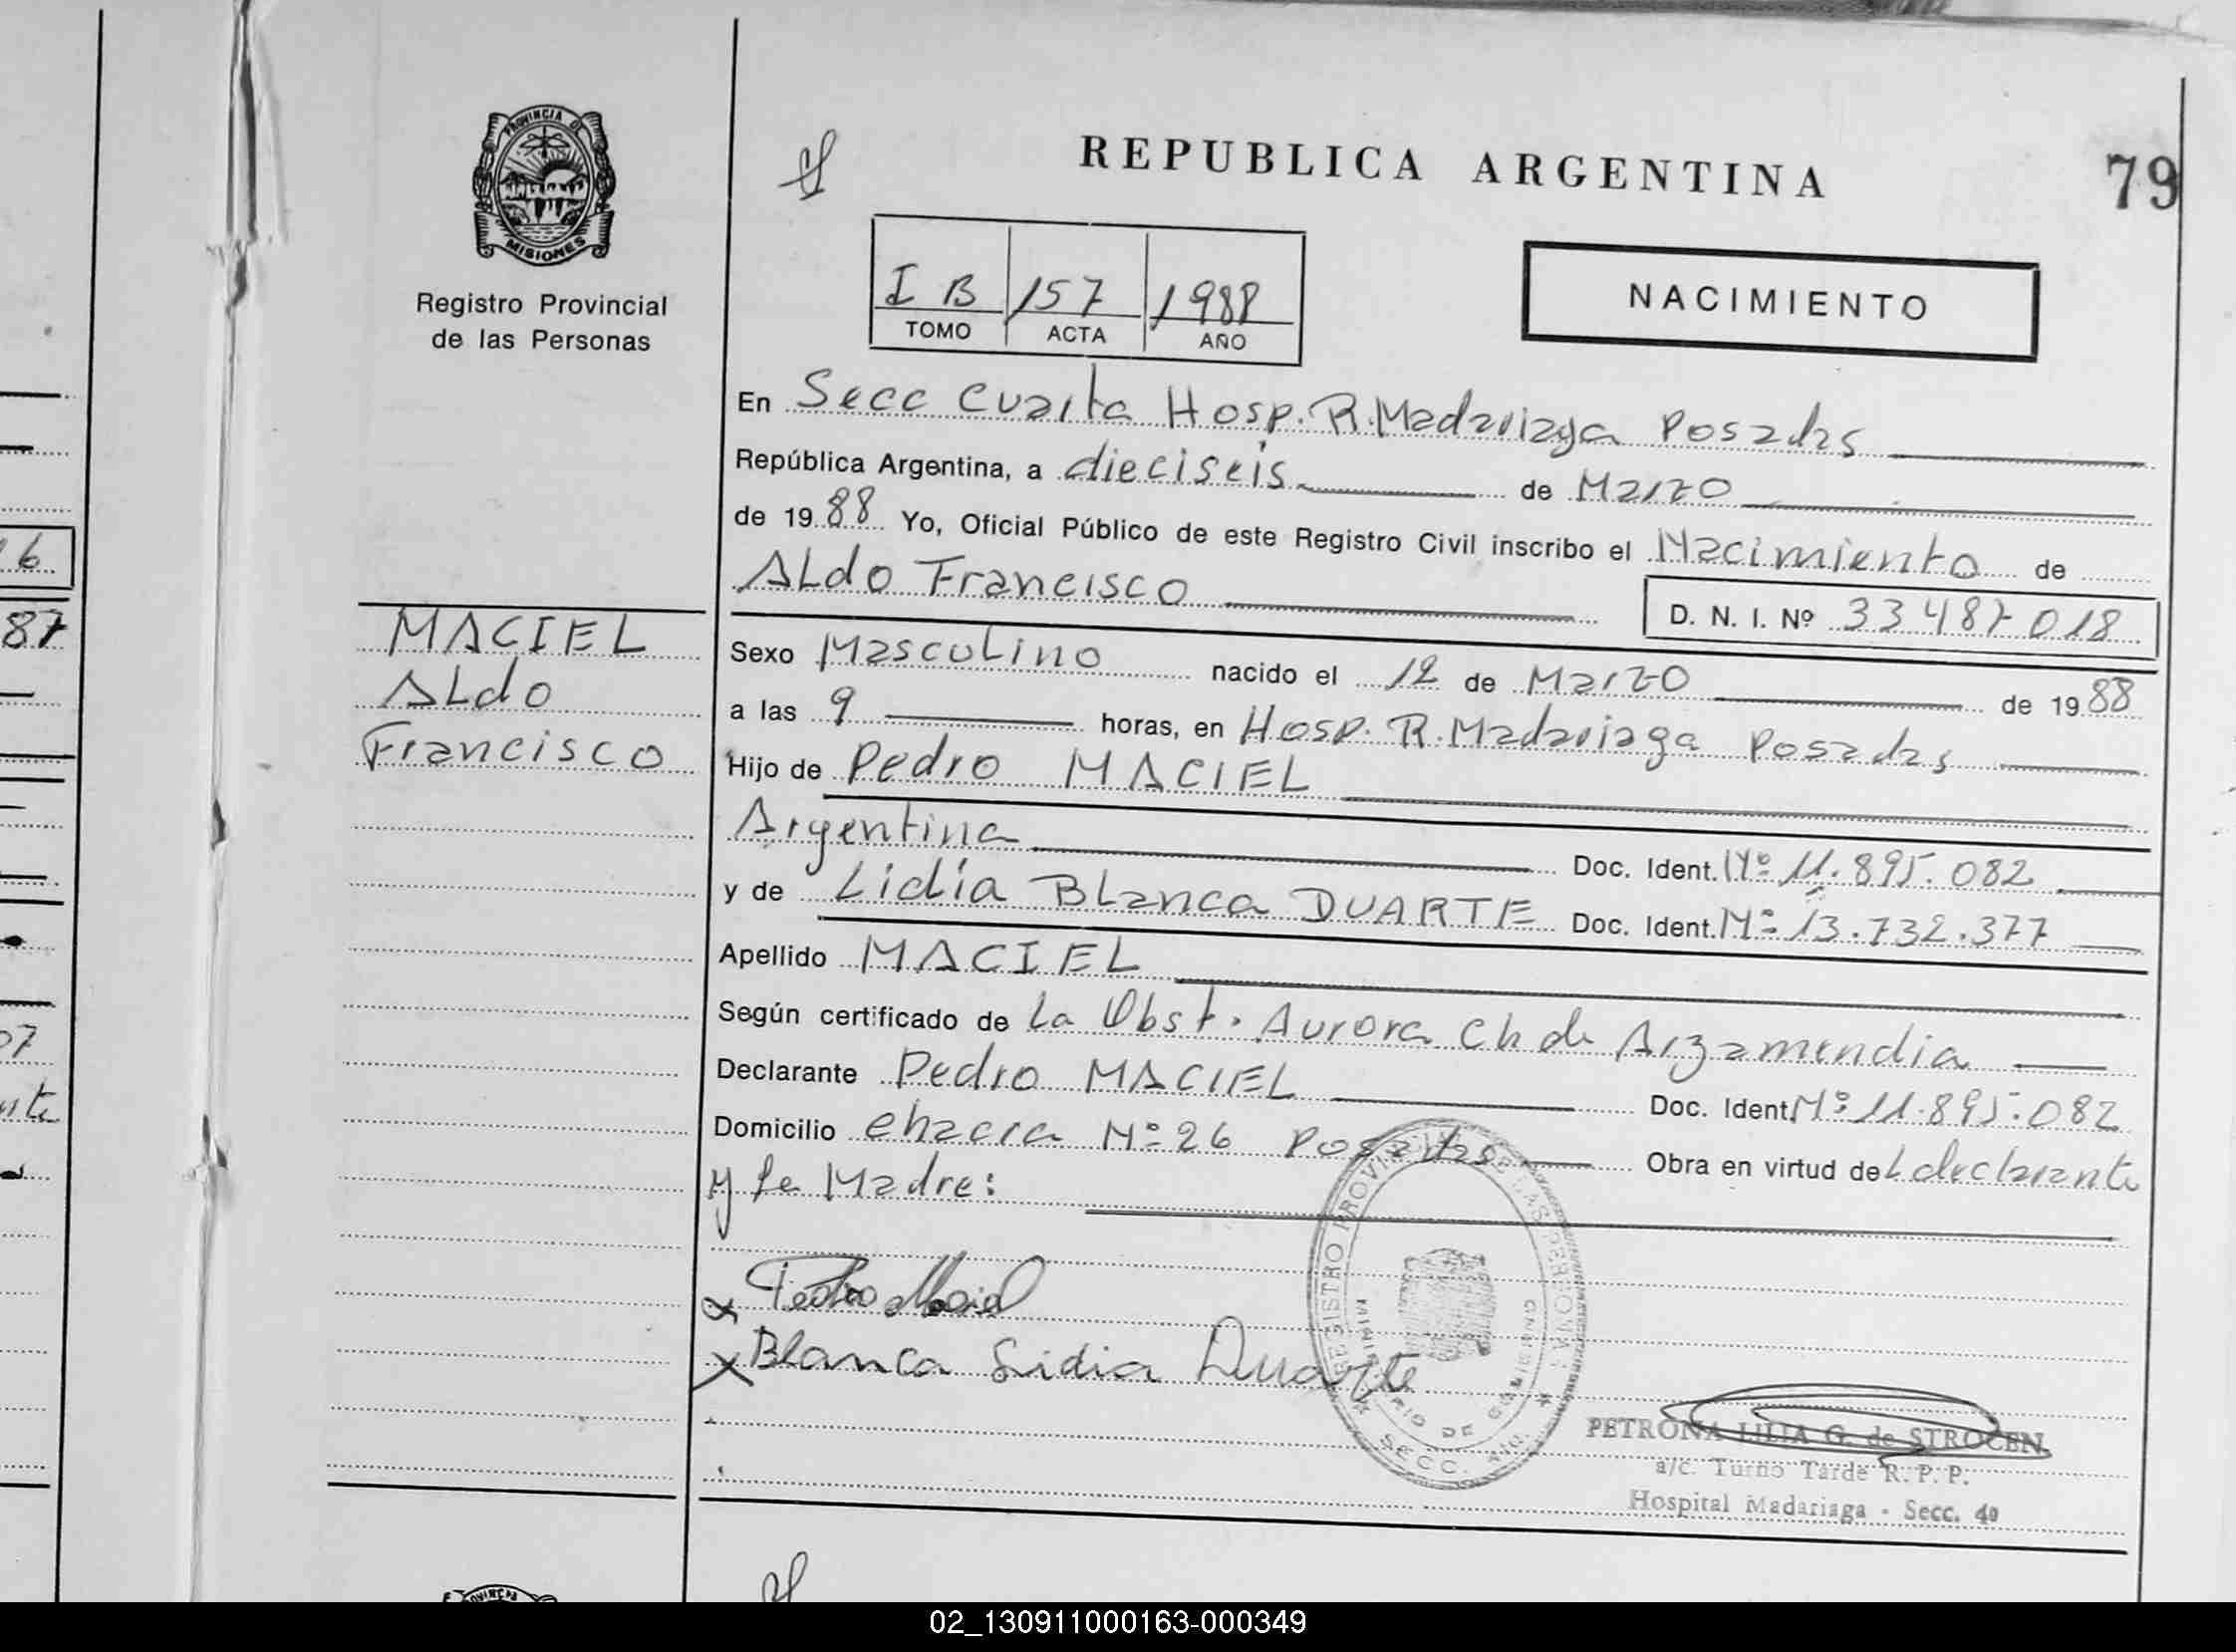 PROVINCIA DE
MISIONES
Registro Provincial
de las Personas
REPUBLICA ARGENTINA
79
I B 157 1988
TOMO ACTA AÑO
NACIMIENTO
En Secc Cuarta Hosp. R. Madariaga Posadas
República Argentina, a dieciseis de Marzo
de 1988 Yo, Oficial Público de este Registro Civil inscribo el Nacimiento de
Aldo Francisco
D. N. I. Nº 33487018
MACIEL
Aldo
Francisco
Sexo Masculino nacido el 12 de Marzo de 1988
a las 9 horas, en Hosp. R. Madariaga Posadas
Hijo de Pedro MACIEL
Argentina Doc. Ident. Nº 11.895.082
y de Lidia Blanca DUARTE Doc. Ident. Nº 13.732.377
Apellido MACIEL
Según certificado de La Obst. Aurora Ch de Arzamendia
Declarante Pedro MACIEL Doc. Ident. Nº 11.895.082
Domicilio chacra Nº 26 Posadas Obra en virtud del declarante
y la Madre:
Pedro Maciel
Blanca Lidia Duarte
REGISTRO PROVINCIAL DE LAS PERSONAS
MINISTERIO DE GOBIERNO
SECC. 4ta
PETRONA LILIA G. de STROCEN
a/c. Turno Tarde R. P. P.
Hospital Madariaga - Secc. 4a
16
87
07
PROVINCIA
02_130911000163-000349